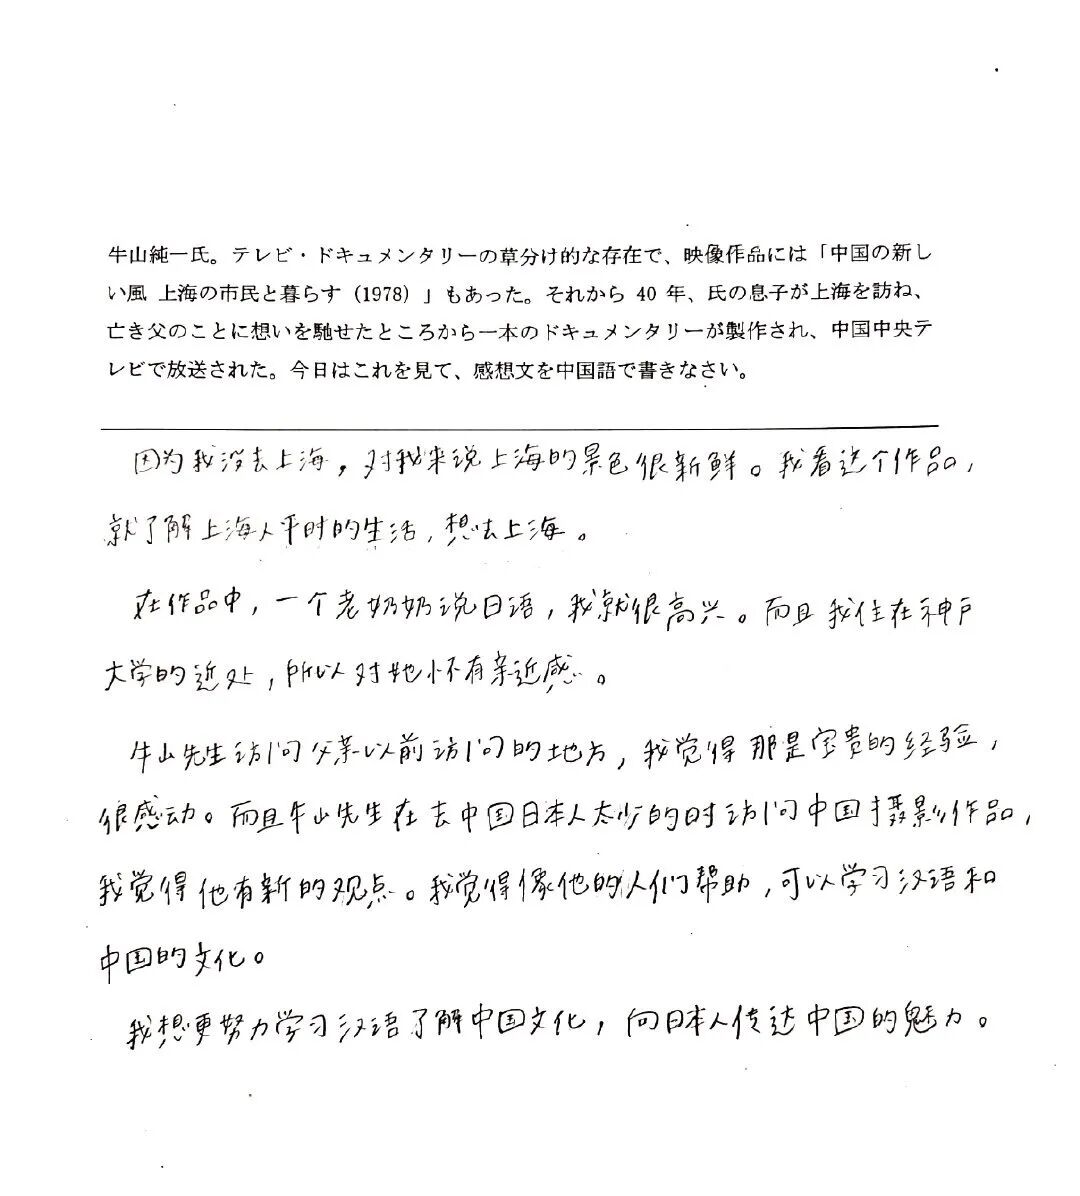 牛山純一氏。テレビ・ドキュメンタリーの草分け的な存在で、映像作品には「中国の新し
い風 上海の市民と暮らす（1978）」もあった。それから 40 年、氏の息子が上海を訪ね、
亡き父のことに想いを馳せたところから一本のドキュメンタリーが製作され、中国中央テ
レビで放送された。今日はこれを見て、感想文を中国語で書きなさい。
因为我没去上海，对我来说上海的景色很新鲜。我看这个作品，
就了解上海人平时的生活，想去上海。
在作品中，一个老奶奶说日语，我就很高兴。而且我住在神户
大学的近处，所以对她怀有亲近感。
牛山先生访问父亲以前访问的地方，我觉得那是宝贵的经验，
很感动。而且牛山先生在去中国日本人太少的时访问中国摄影作品，
我觉得他有新的观点。我觉得像他的人们帮助，可以学习汉语和
中国的文化。
我想更努力学习汉语了解中国文化，向日本人传达中国的魅力。